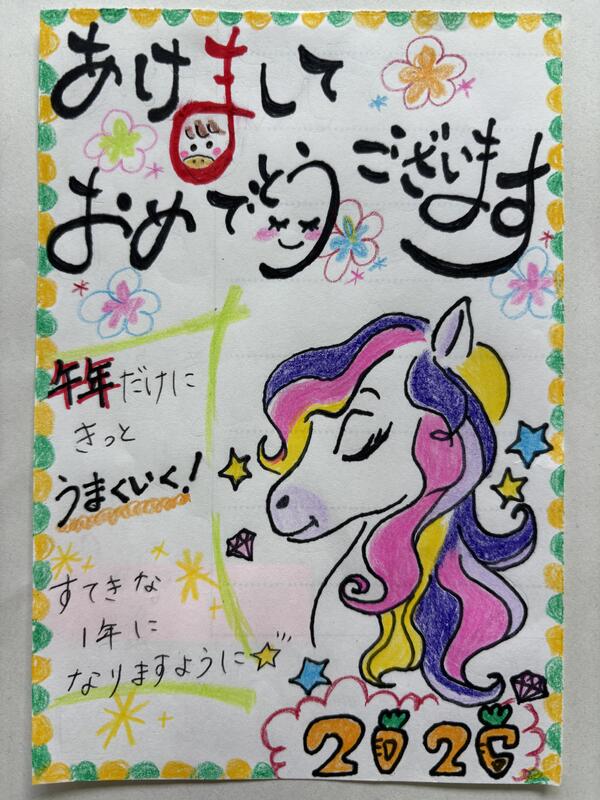 あけまして
おめでとう ございます
午年だけに
きっと
うまくいく!
すてきな
1年に
なりますように
2026